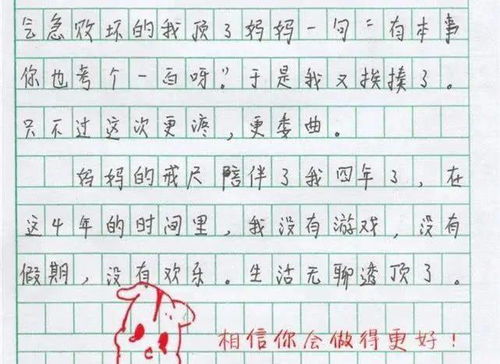 气急败坏的我顶了妈妈一句“有本事
你也考个一百呀。”于是我又挨揍了。
只不过这次更疼，更委曲。
妈妈的戒尺陪伴了我四年了，在
这4年的时间里，我没有游戏，没有
假期，没有欢乐。生活无聊透顶了。
相信你会做得更好！